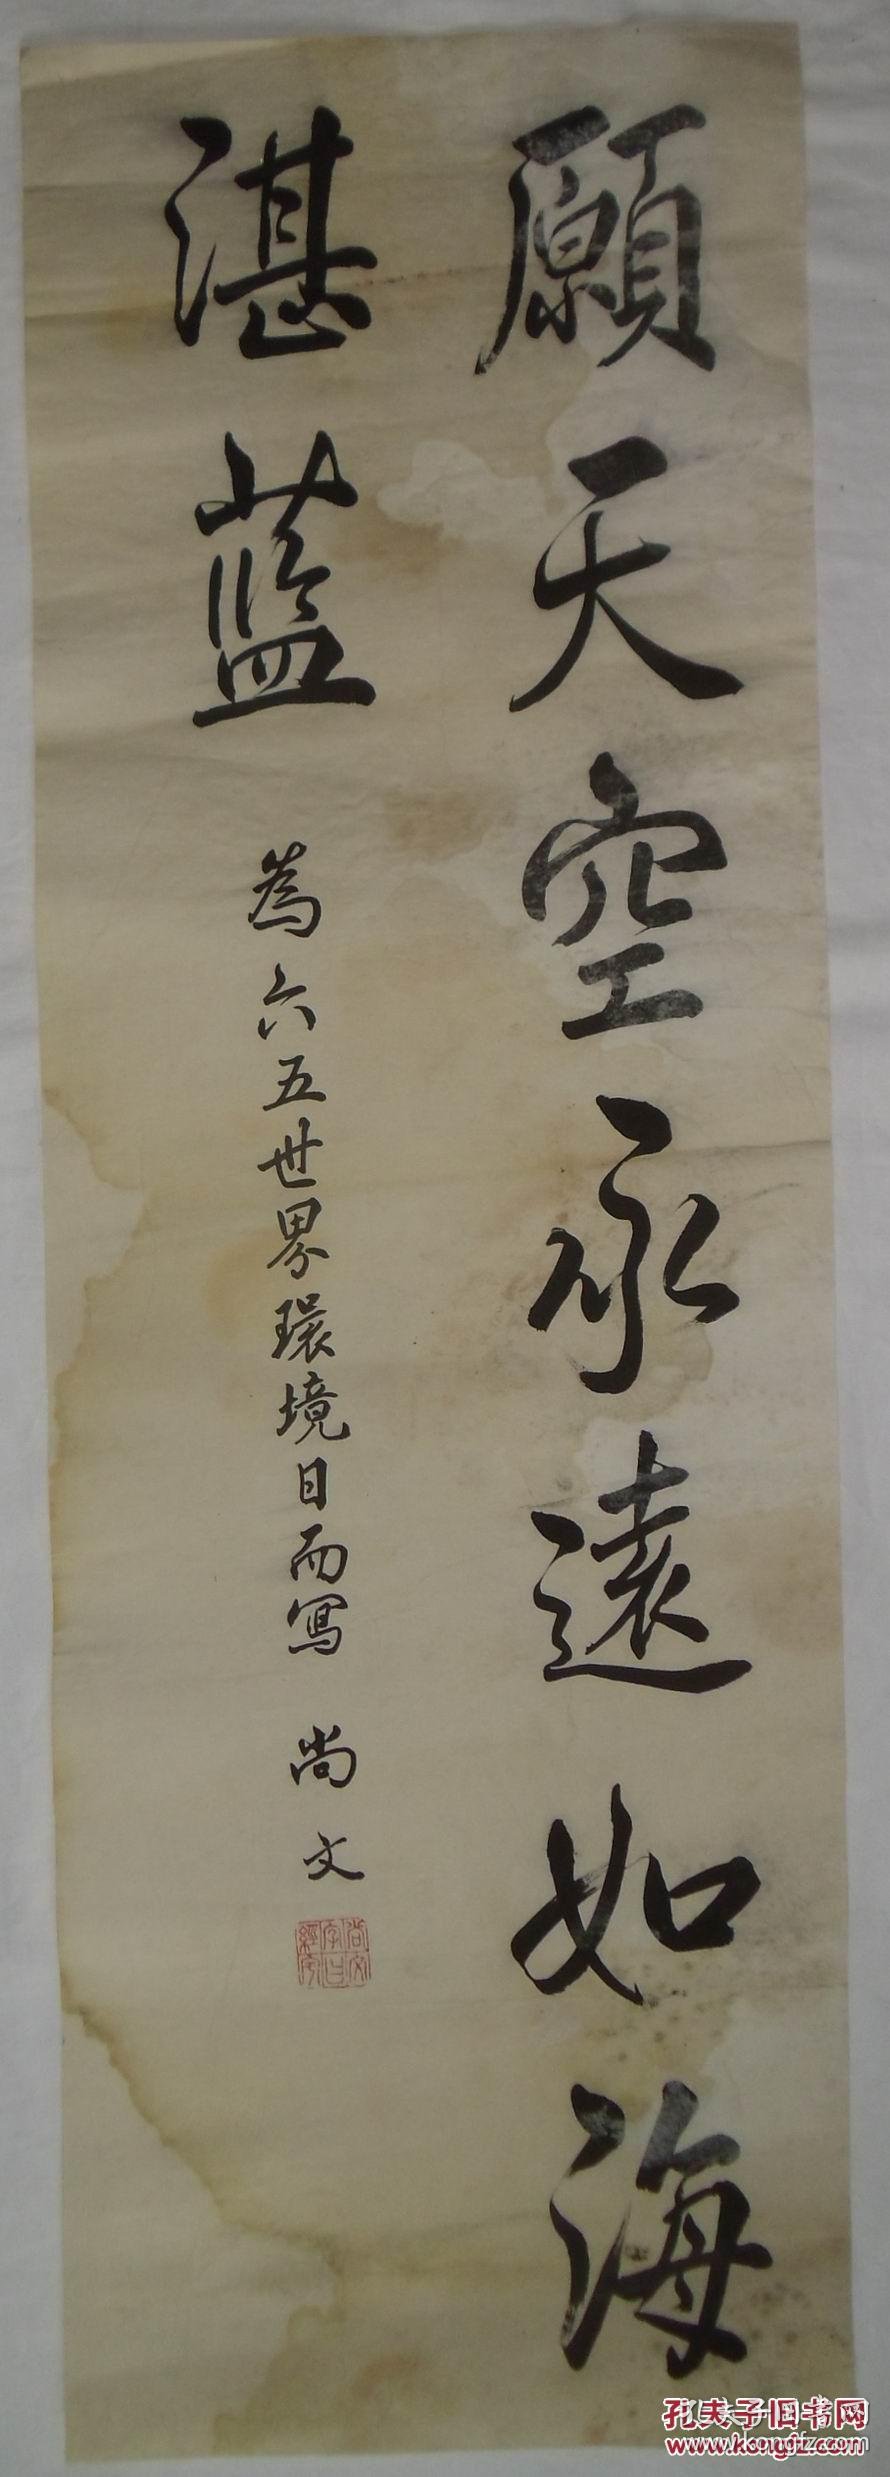 願天空永遠如海
湛藍
為六五世界環境日而寫 尚文
孔夫子旧书网
www.kongfz.com